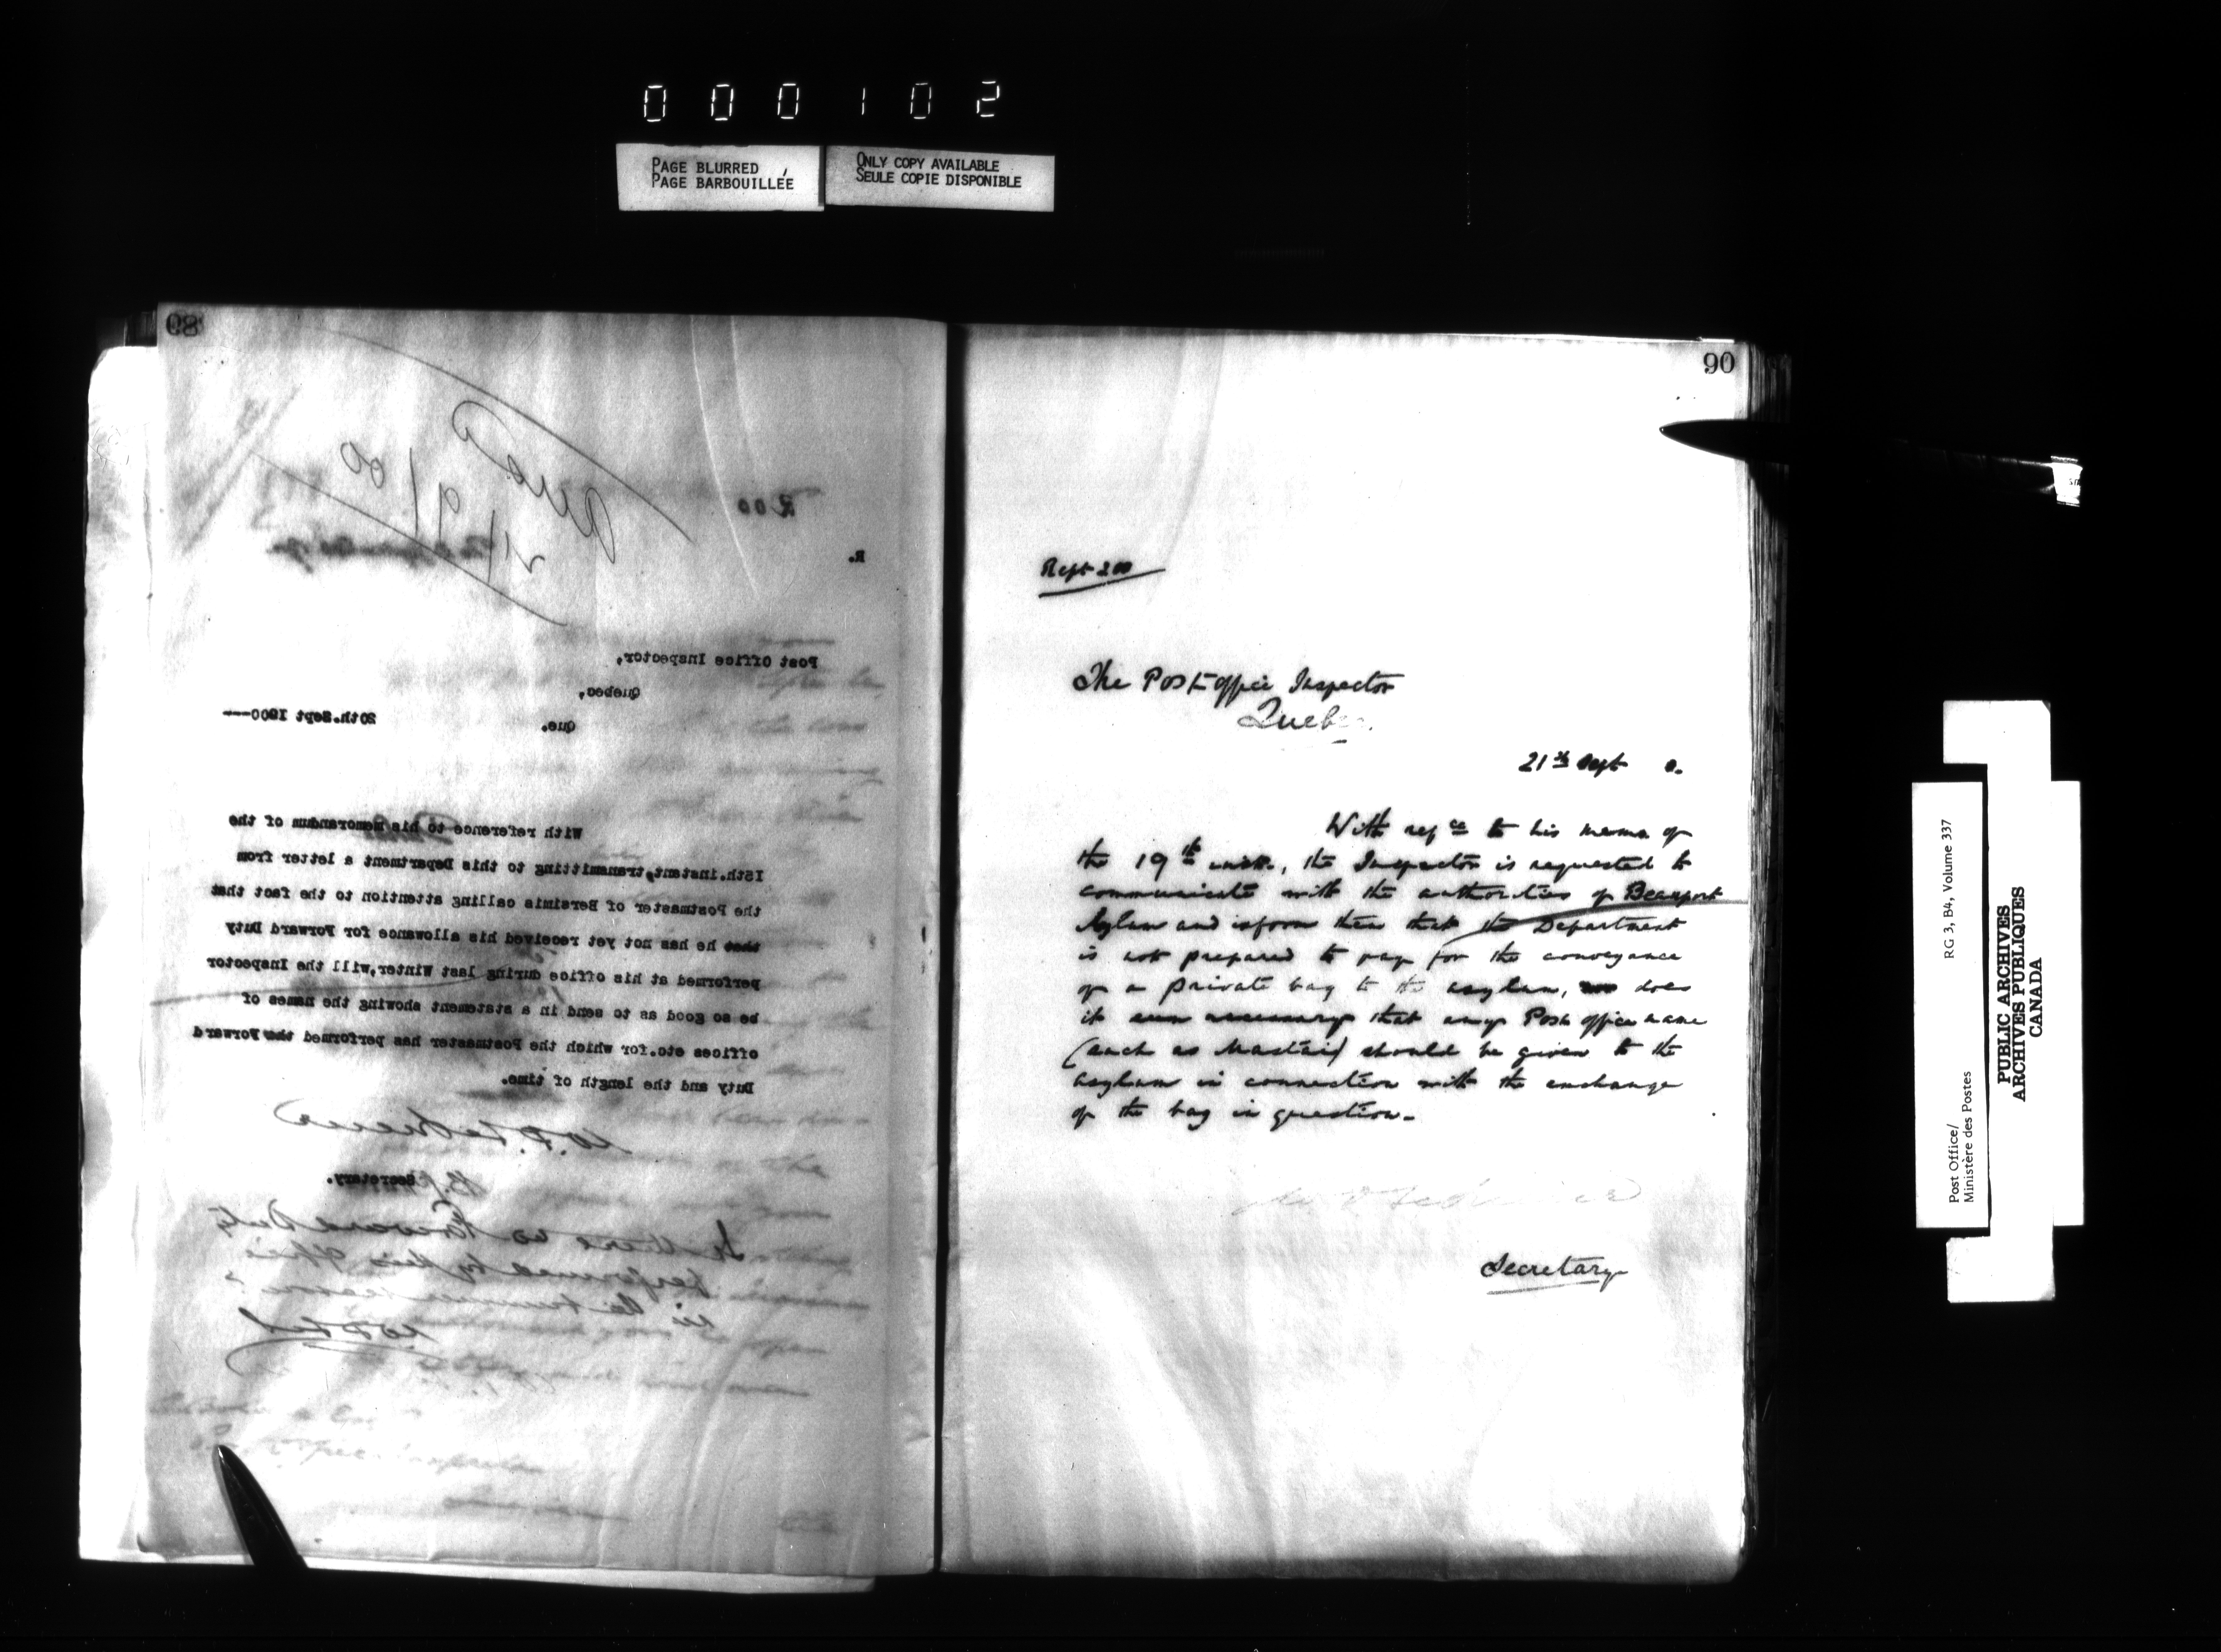 000102
PAGE BLURRED
PAGE BARBOUILLÉE
ONLY COPY AVAILABLE
SEULE COPIE DISPONIBLE
89
200
R.
Post Office Inspector,
Quebec,
Que.
20th.Sept 1900---
With reference to his memorandum of the
15th.instant,transmitting to this Department a letter from
the Postmaster of Bersimis calling attention to the fact that
that he has not yet received his allowance for Forward Duty
performed at his office during last Winter,will the Inspector
be so good as to send in a statement showing the names of
offices etc.for which the Postmaster has performed the Forward
Duty and the length of time.
Secretary.
Is there no Forward Duty
performed by his office
in the summer season?
90
Rept 200
The Post office Inspector
Quebec.
21st Sept 0.
With refce to his memo of
the 19th inst., the Inspector is requested to
communicate with the authorities of Beauport
Asylum and inform them that the Department
is not prepared to pay for the conveyance
of a private bag to the asylum, does
it seem necessary that any Post office name
(such as Mastai) should be given to the
asylum in connection with the exchange
of the bag in question.
Secretary
Post Office/
Ministère des Postes
RG 3, B4, Volume 337
PUBLIC ARCHIVES
ARCHIVES PUBLIQUES
CANADA